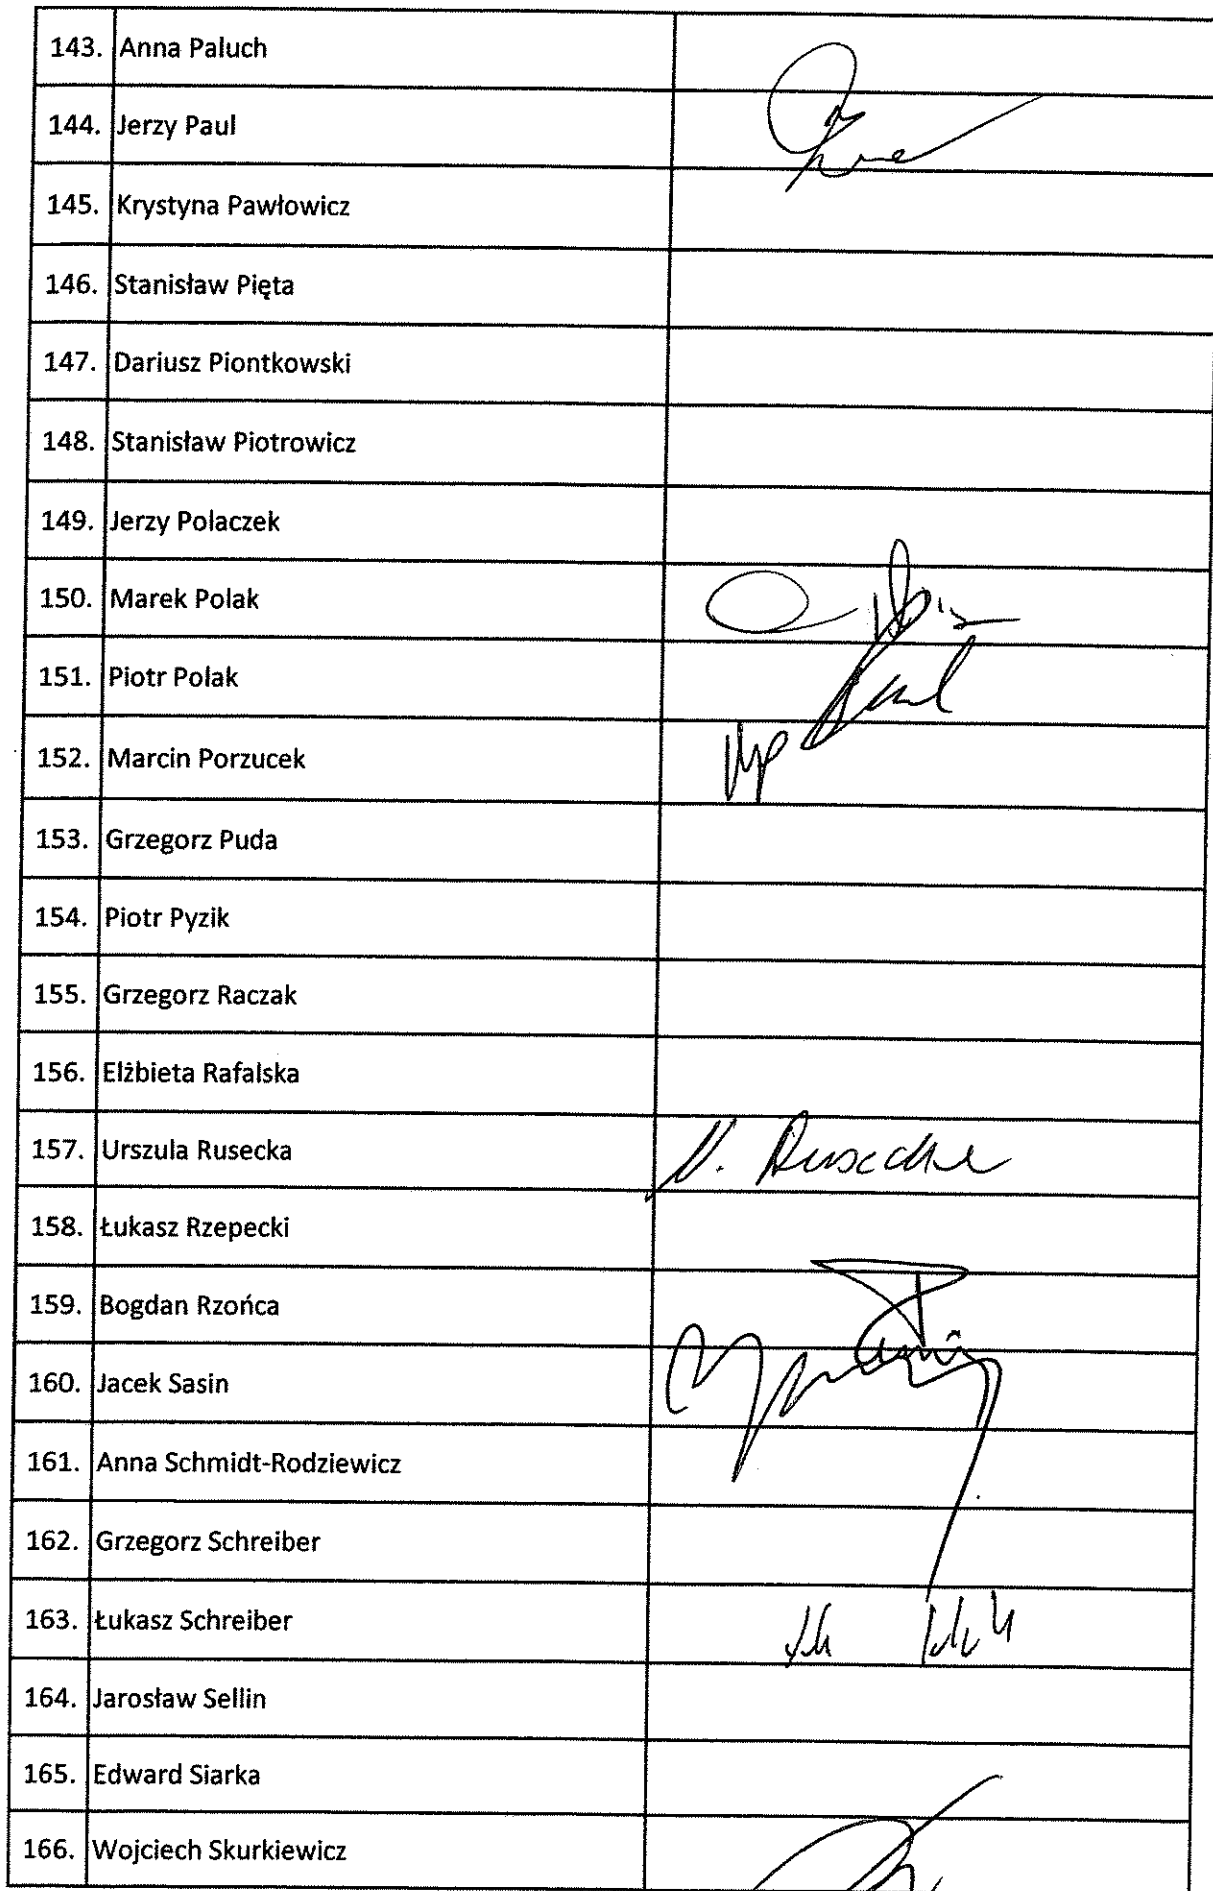 143. Anna Paluch
144. Jerzy Paul
145. Krystyna Pawłowicz
146. Stanisław Pięta
147. Dariusz Piontkowski
148. Stanisław Piotrowicz
149. Jerzy Polaczek
150. Marek Polak
151. Piotr Polak
152. Marcin Porzucek
153. Grzegorz Puda
154. Piotr Pyzik
155. Grzegorz Raczak
156. Elżbieta Rafalska
157. Urszula Rusecka U. Rusecka
158. Łukasz Rzepecki
159. Bogdan Rzońca
160. Jacek Sasin
161. Anna Schmidt-Rodziewicz
162. Grzegorz Schreiber
163. Łukasz Schreiber
164. Jarosław Sellin
165. Edward Siarka
166. Wojciech Skurkiewicz